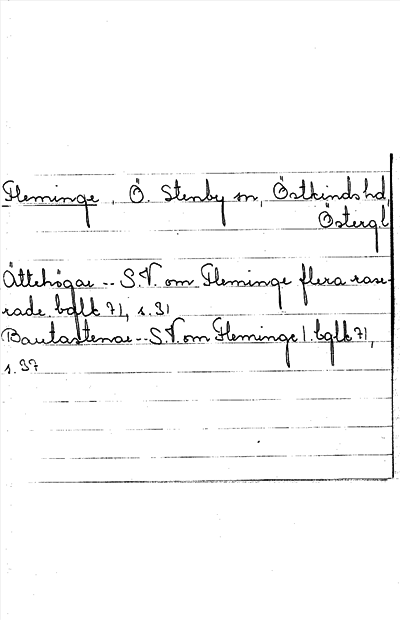 Fleminge, Ö. Stenby sn, Östkinds hd,
Östergl
Ättehögar -- S.V. om Fleminge flera rase-
rade. bqlk 71, s. 31
Bautastenar -- S.V. om Fleminge l. bqlk 71,
s. 37